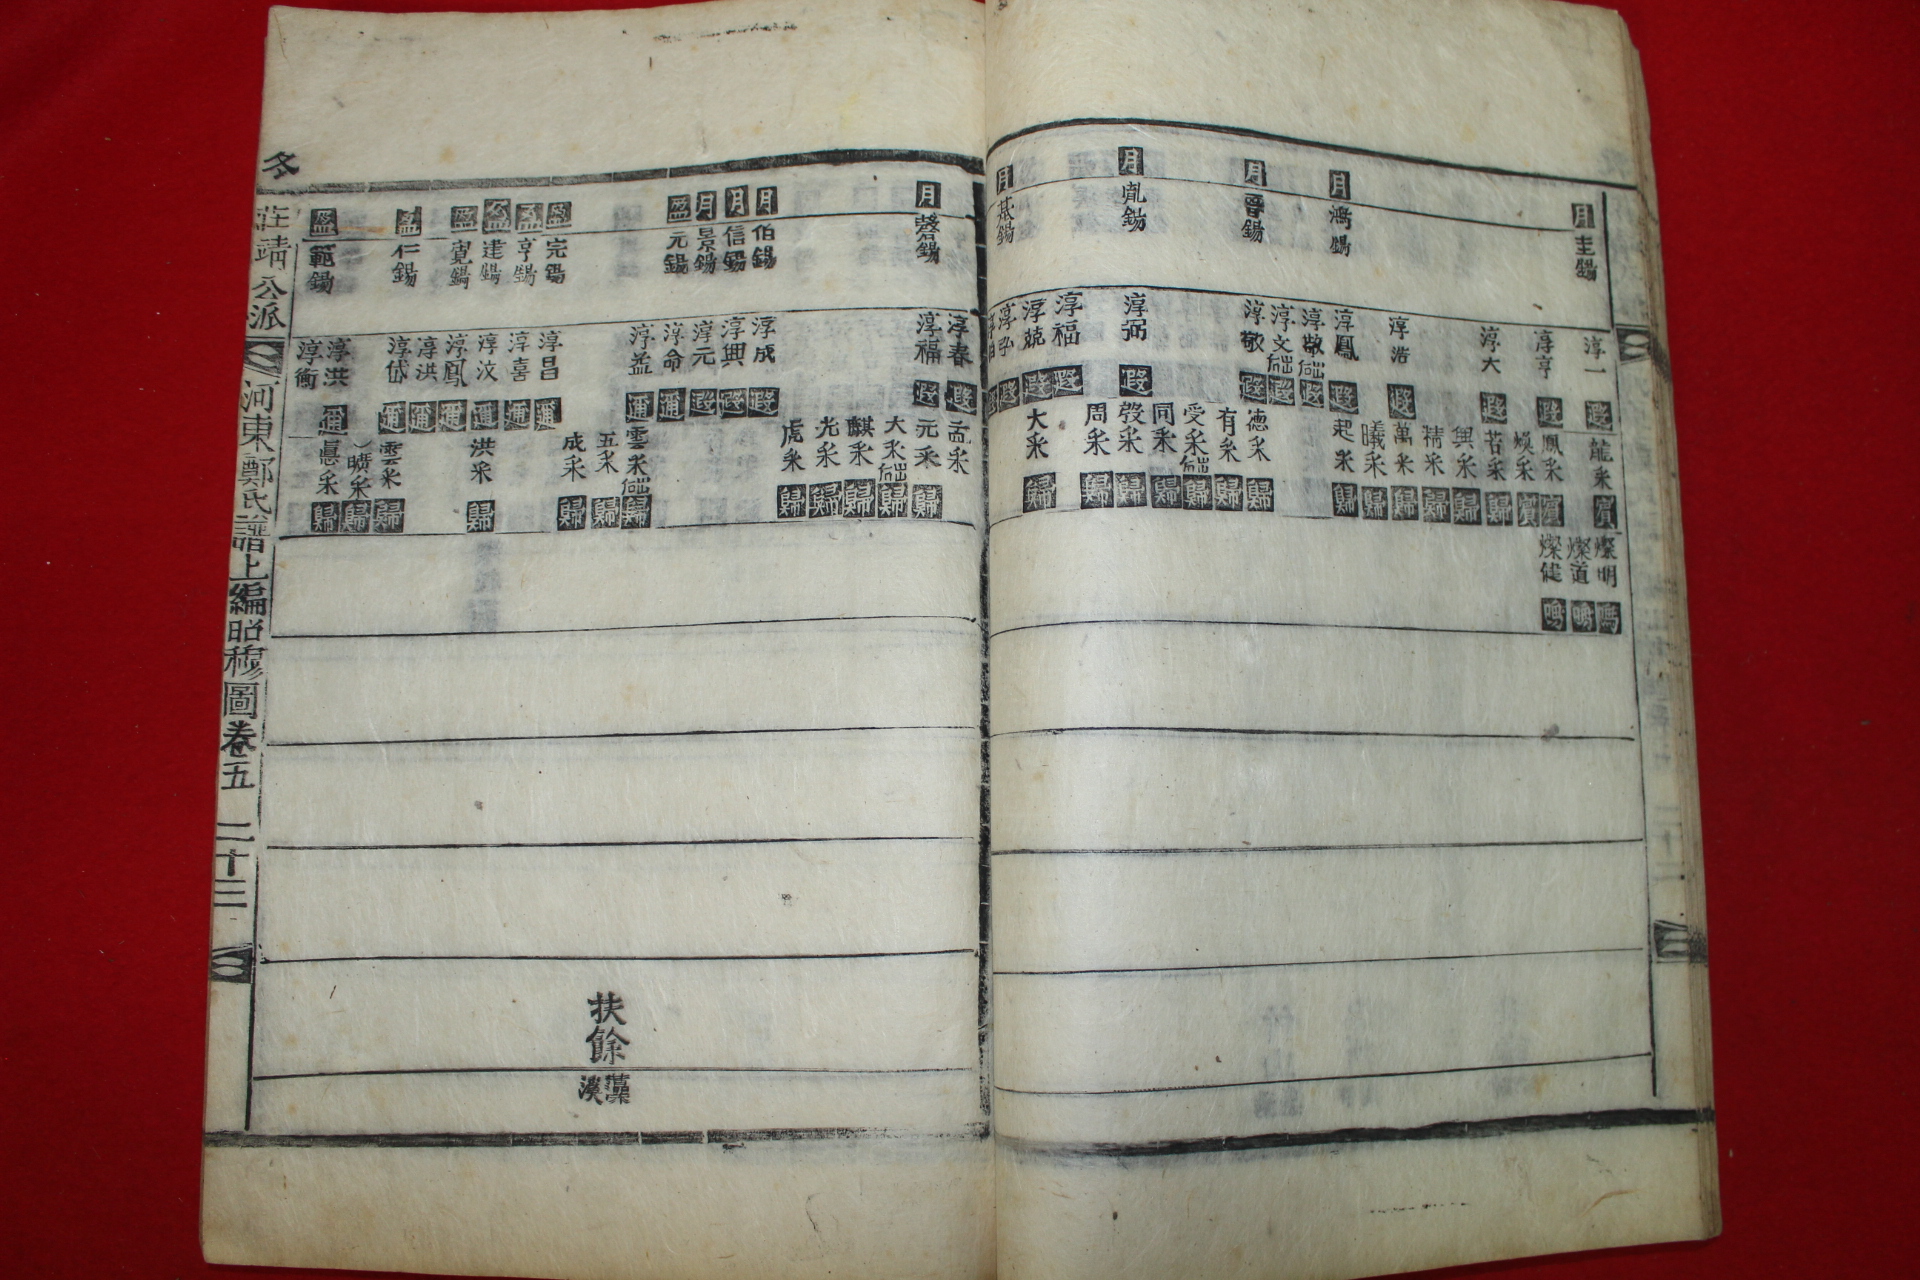 月 圭錫
月 鴻錫
月 晉錫
月 胤錫
月 基錫
淳一 遐
淳亨 遐
淳大 遐
淳浩 遐
淳鳳 遐
淳敬 出系 遐
淳文 出系 遐
淳敬 遐
淳弼 遐
淳福 遐
淳兢 遐
淳 遐
龍采 賓
鳳采 賓
煥采 賓
若采 歸
興采 歸
精采 歸
萬采 歸
曦采 歸
起采 歸
德采 歸
有采 歸
受采 出系 歸
同采 歸
發采 歸
周采 歸
大采 歸
燦明 鳴
燦道 鳴
燦健 鳴
月 磬錫
月 伯錫
月 信錫
月 景錫
盈 元錫
盈 完錫
盈 亨錫
盈 建錫
盈 寬錫
盈 仁錫
盈 範錫
淳春 遐
淳福 遐
淳成 遐
淳興 遐
淳元 遐
淳命 邇
淳益 邇
淳昌 邇
淳喜 邇
淳汶 邇
淳鳳 邇
淳洪 邇
淳岱 邇
淳洪 邇
淳衡
孟采
元采 歸
大采 出系 歸
麒采 歸
光采 歸
虎采 歸
雲采 出系 歸
五采 歸
成采 歸
洪采 歸
雲采 歸
曠采 歸
真采 歸
扶餘 藻溪
冬 莊靖公派 河東鄭氏譜上編昭穆圖卷五 二十三